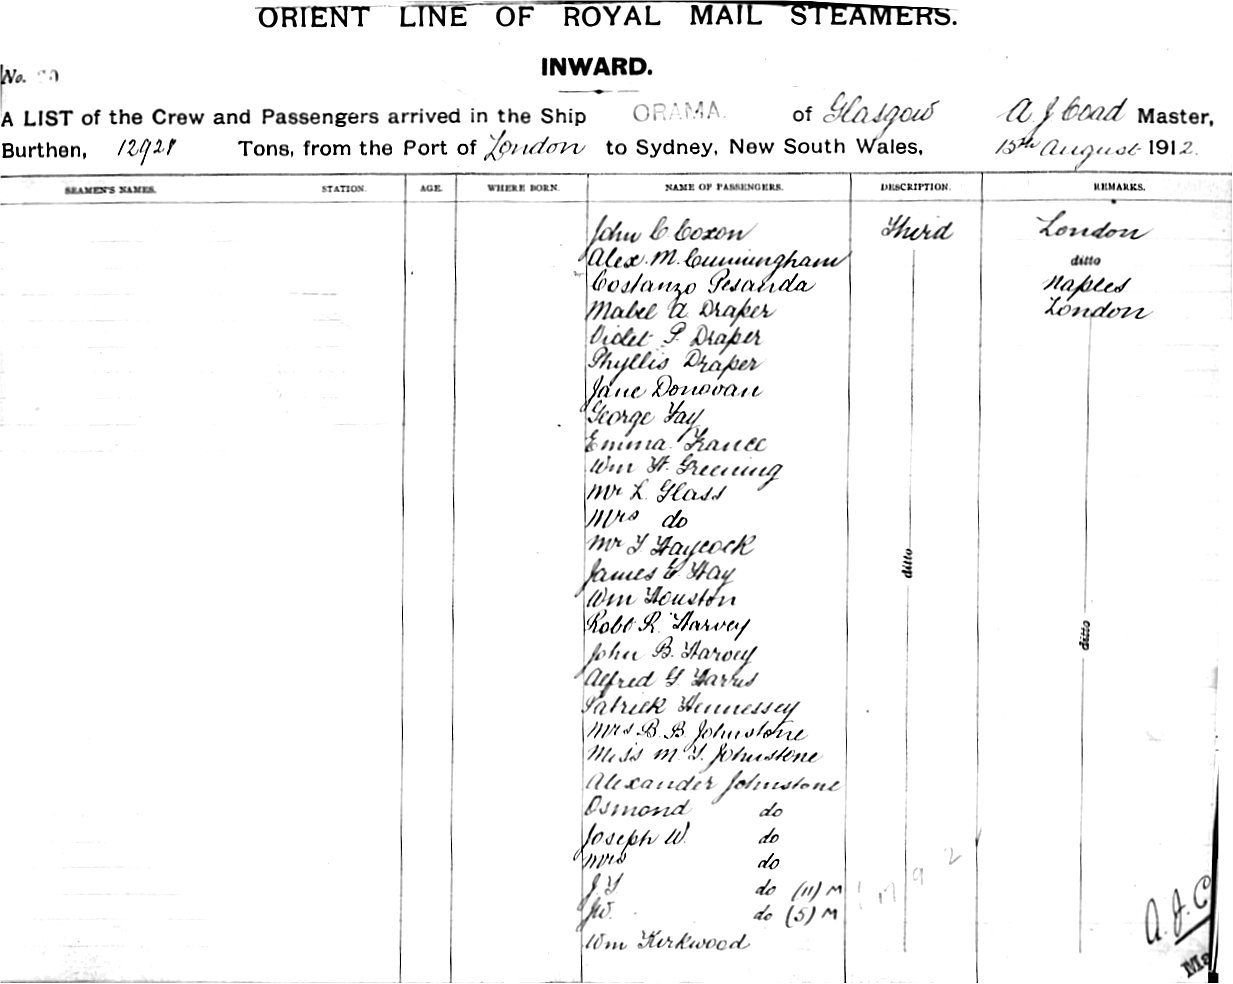 ORIENT LINE OF ROYAL MAIL STEAMERS.
INWARD.
No.
A LIST of the Crew and Passengers arrived in the Ship ORAMA. of Glasgow A. J Coad Master,
Burthen, 12927 Tons, from the Port of London to Sydney, New South Wales, 15th August 1912.
SEAMEN'S NAMES. STATION. AGE. WHERE BORN. NAME OF PASSENGERS. DESCRIPTION. REMARKS.
John C Coxon Third London
Alex. M. Cunningham ditto
Costanzo Pesanda Naples
Mabel A Draper London
Violet P. Draper
Phyllis Draper
Jane Donovan
George Fay
Emma France
Wm H. Greening
Mr L. Glass
Mrs do
Mr T Haycock
James E Hay
ditto
Wm Houston
Robt R. Harvey
ditto
John B. Harvey
Alfred G Harris
Patrick Hennessey
Mrs B. B Johnstone
Miss M. Y. Johnstone
Alexander Johnstone
Osmond do
Joseph W. do
Mrs do
J. Y do (11) M
JW. do (5) M
Wm Kirkwood
A. J. C